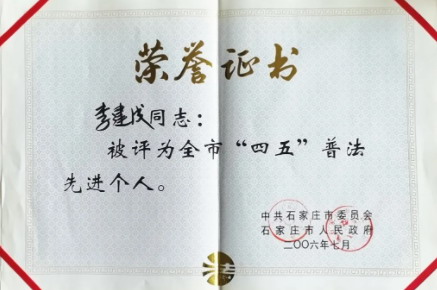 荣誉证书
李建成同志：
被评为全市“四五”普法
先进个人。
中共石家庄市委员会
石家庄市人民政府
二〇〇六年七月